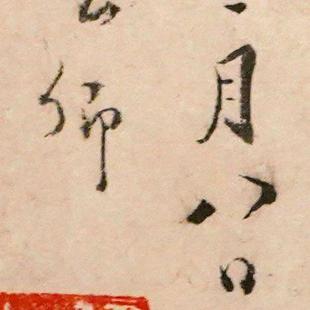 月八日
卿